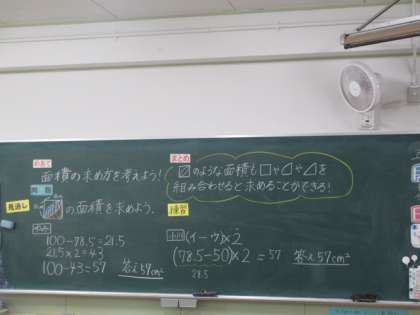 めあて
面積の求め方を考えよう!
問題
の面積を求めよう.
見通し
100-78.5=21.5
21.5×2=43
100-43=57 答え57cm²
まとめ
のような面積も□や
を
組み合わせると求めることができる!
練習
(イーウ)×2
(78.5-50)×2=57 答え57cm²
28.5